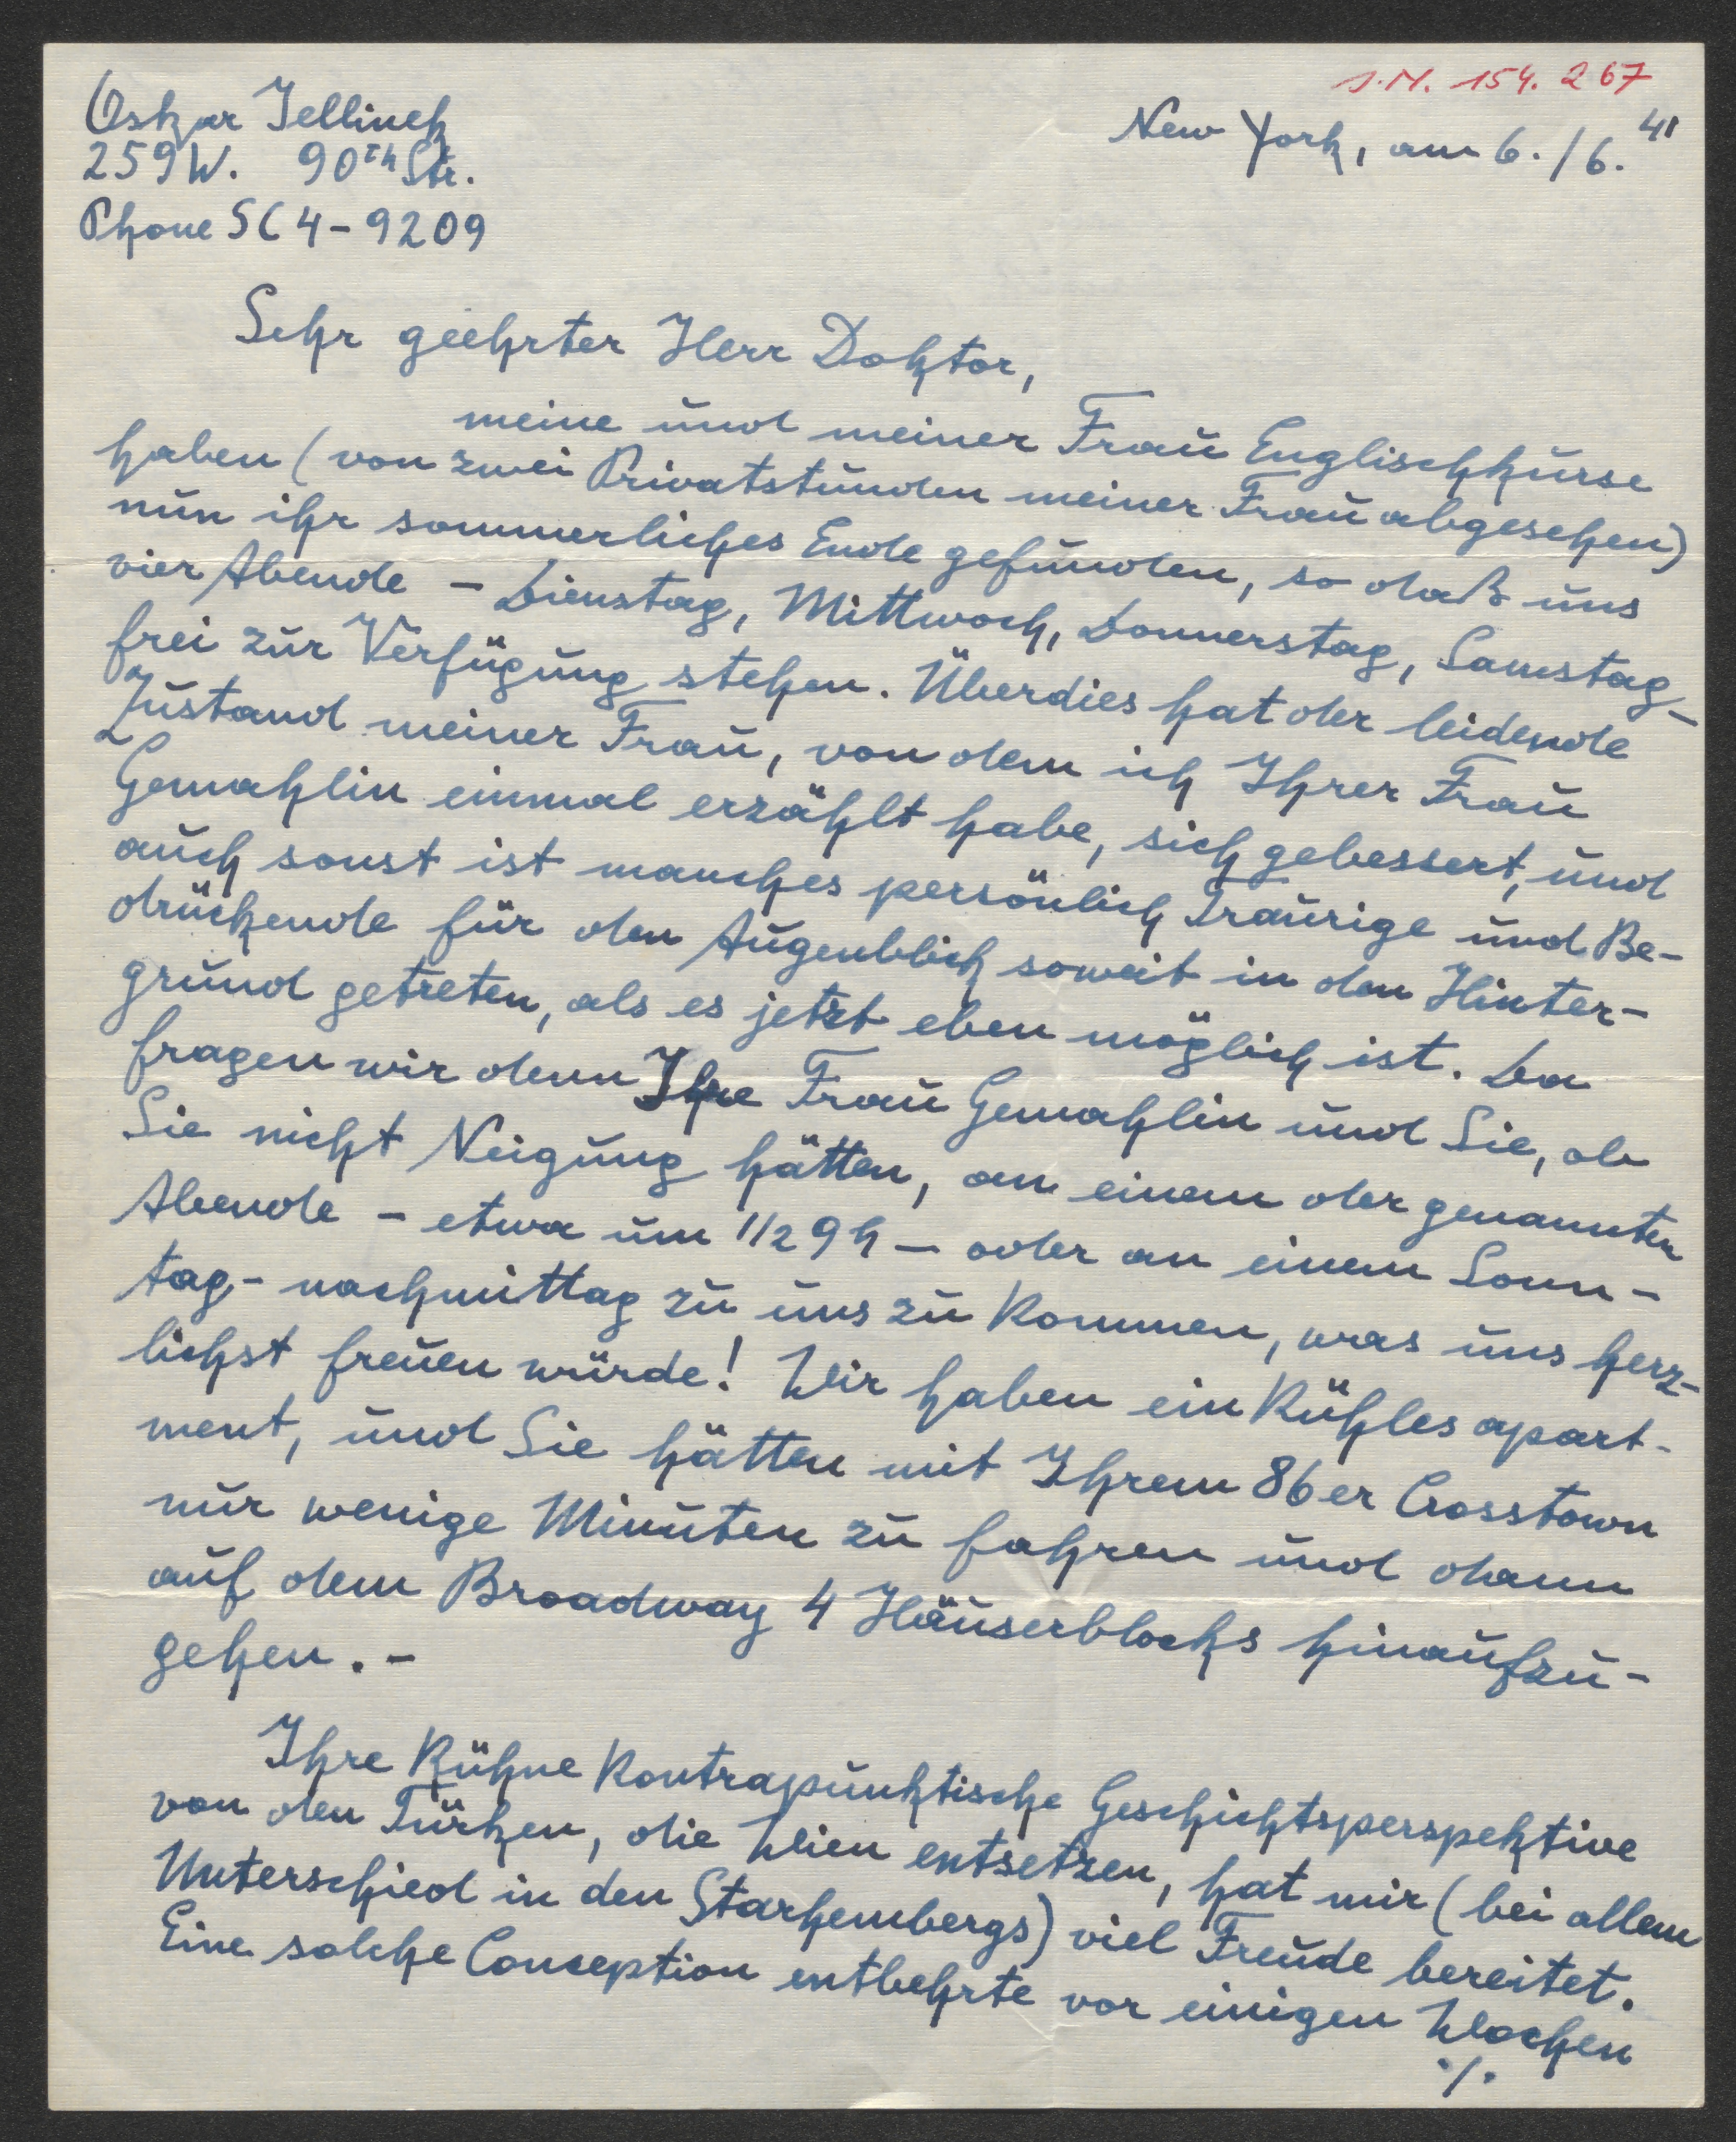 J.N. 154.267
Oskar Jellinek
259 W. 90th Str.
Phone SC 4-9209
New York, am 6./6. 41
Sehr geehrter Herr Doktor,
meine und meiner Frau Englischkurse
haben (von zwei Privatstunden meiner Frau abgesehen)
nun ihr sommerliches Ende gefunden, so daß uns
vier Abende - Dienstag, Mittwoch, Donnerstag, Samstag -
frei zur Verfügung stehen. Überdies hat der leidende
Zustand meiner Frau, von dem ich Ihrer Frau
Gemahlin einmal erzählt habe, sich gebessert, und
auch sonst ist manches persönlich Traurige und Be-
drückende für den Augenblick soweit in den Hinter-
grund getreten, als es jetzt eben möglich ist. Da
fragen wir denn Ihre Frau Gemahlin und Sie, ob
Sie nicht Neigung hätten, an einem der genannten
Abende - etwa um 1/2 9 h - oder an einem Sonn-
tag-nachmittag zu uns zu kommen, was uns herz-
lichst freuen würde! Wir haben ein kühles apart-
ment, und Sie hätten mit Ihrem 86er Crosstown
nur wenige Minuten zu fahren und dann
auf dem Broadway 4 Häuserblocks hinaufzu-
gehen. -
Ihre kühne kontrapunktische Geschichtsperspektive
von den Türken, die Wien entsetzen, hat mir (bei allem
Unterschied in den Starhembergs) viel Freude bereitet.
Eine solche Conception entbehrte vor einigen Wochen
./.